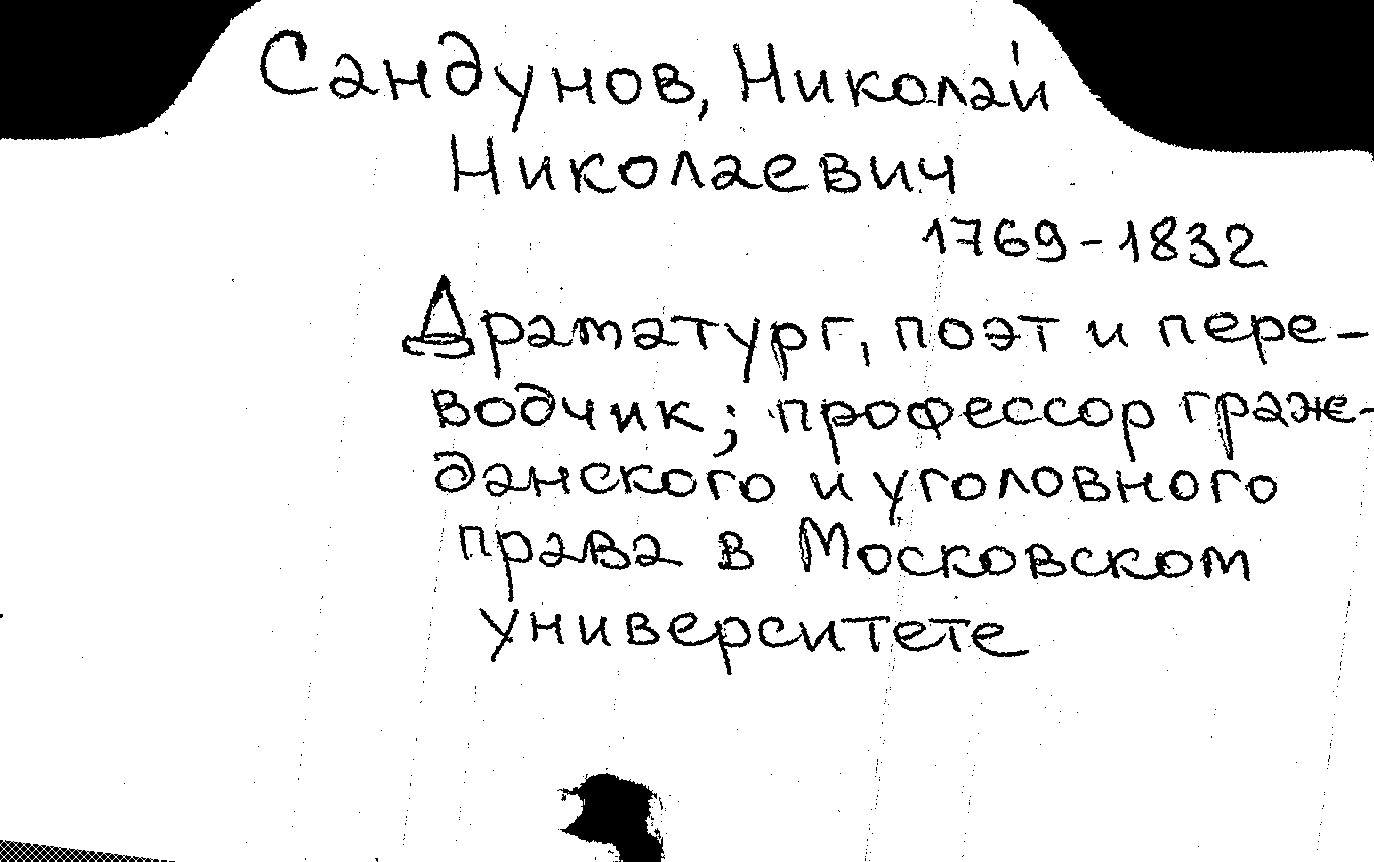 Сандунов, Николай
Николаевич
1769-1832
Драматург, поэт и пере-
водчик; профессор граж-
данского и уголовного
права в Московском
университете